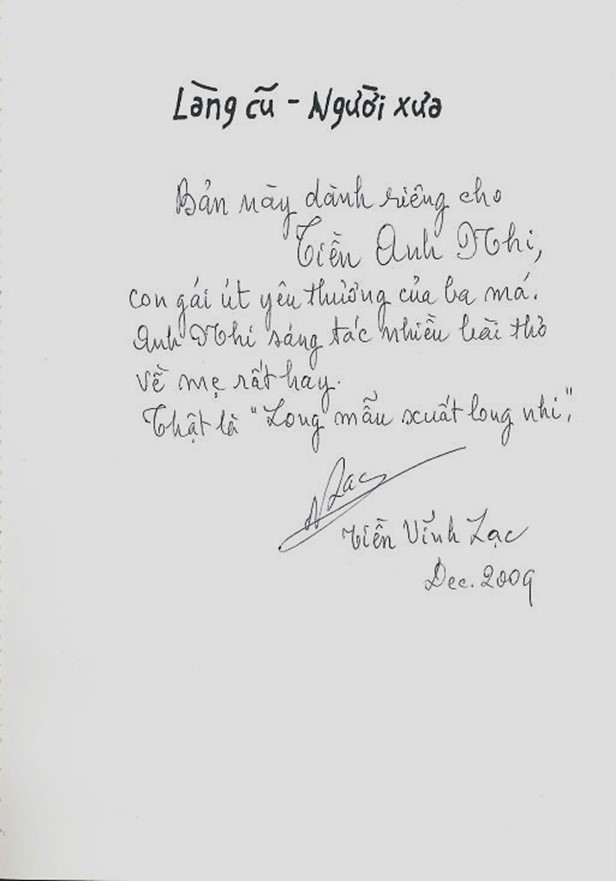 Làng cũ - Người xưa
Bản này dành riêng cho
Tiền Anh Nhi,
con gái út yêu thương của ba má.
Anh Nhi sáng tác nhiều bài thơ
về mẹ rất hay.
Thật là "Long mẫu xuất long nhi".
Lạc
Tiền Vĩnh Lạc
Dec. 2009